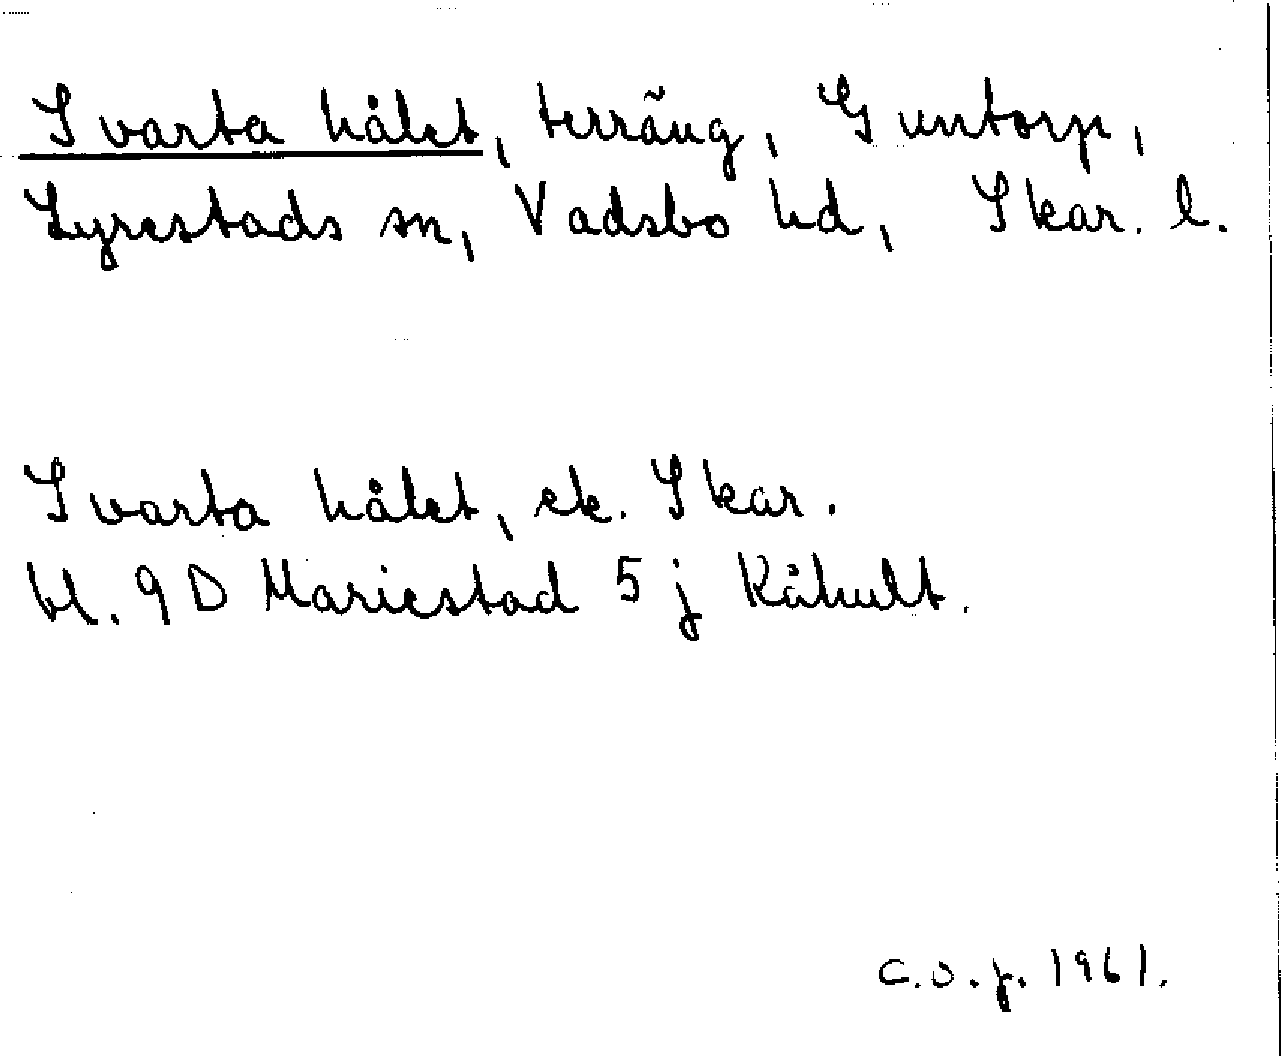 Svarta hålet, terräng, Guntorp,
Lyrestads sn, Vadsbo hd, Skar. l.
Svarta hålet, ek. Skar.
bl. 9 D Mariestad 5 j Kåhult.
C.O.f. 1961.